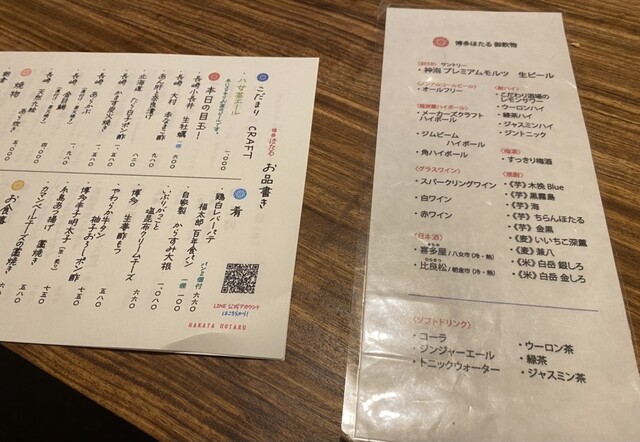 博多ほたる 御飲物
サントリー
・神泡 プレミアムモルツ 生ビール
・オールフリー
・メーカーズクラフト
ハイボール
・ジムビーム
ハイボール
・角ハイボール
〈グラスワイン〉
・スパークリングワイン
・白ワイン
・赤ワイン
〈日本酒〉
・喜多屋/八女市(冷・熱)
・比良松/朝倉市(冷・熱)
・こだわり酒場の
レモンサワー
・ウーロンハイ
・緑茶ハイ
・ジャスミンハイ
・ジントニック
〈梅酒〉
・すっきり梅酒
〈焼酎〉
・《芋》木挽 Blue
・《芋》黒霧島
・《芋》海
・《芋》ちらんほたる
・《芋》金黒
・《麦》いいちこ深薫
・《麦》兼八
・《米》白岳 銀しろ
・《米》白岳 金しろ
〈ソフトドリンク〉
・コーラ
・ジンジャーエール
・トニックウォーター
・ウーロン茶
・緑茶
・ジャスミン茶
こだまり CRAFT 博多ほたる お品書き
八女茶エール 1,000
本日の目玉!
・長崎小長井 生牡蠣 一個 六〇〇
・長崎 大村 赤なまこ酢
・あん肝と奈良漬け
・北海道 たら白子ポン酢
・長崎
・長崎 あら
・長崎 金目鯛
焼物
肴
・鶏白レバーパテ パン2個付 六六〇
・福太郎 百年食パン 一個
・自家製 からすみ大根
・いぶりがっこと塩昆布クリームチーズ 六六〇
・博多 生春酢もつ
・やわらか牛タン 柚子おろしポン酢
・博多辛子明太子
・糸島あつ揚げ 藁焼き 七五〇
・カマンベールチーズの藁焼き 五八〇
お食事
LINE公式アカウント
はこちらから!
HAKATA HOTARU